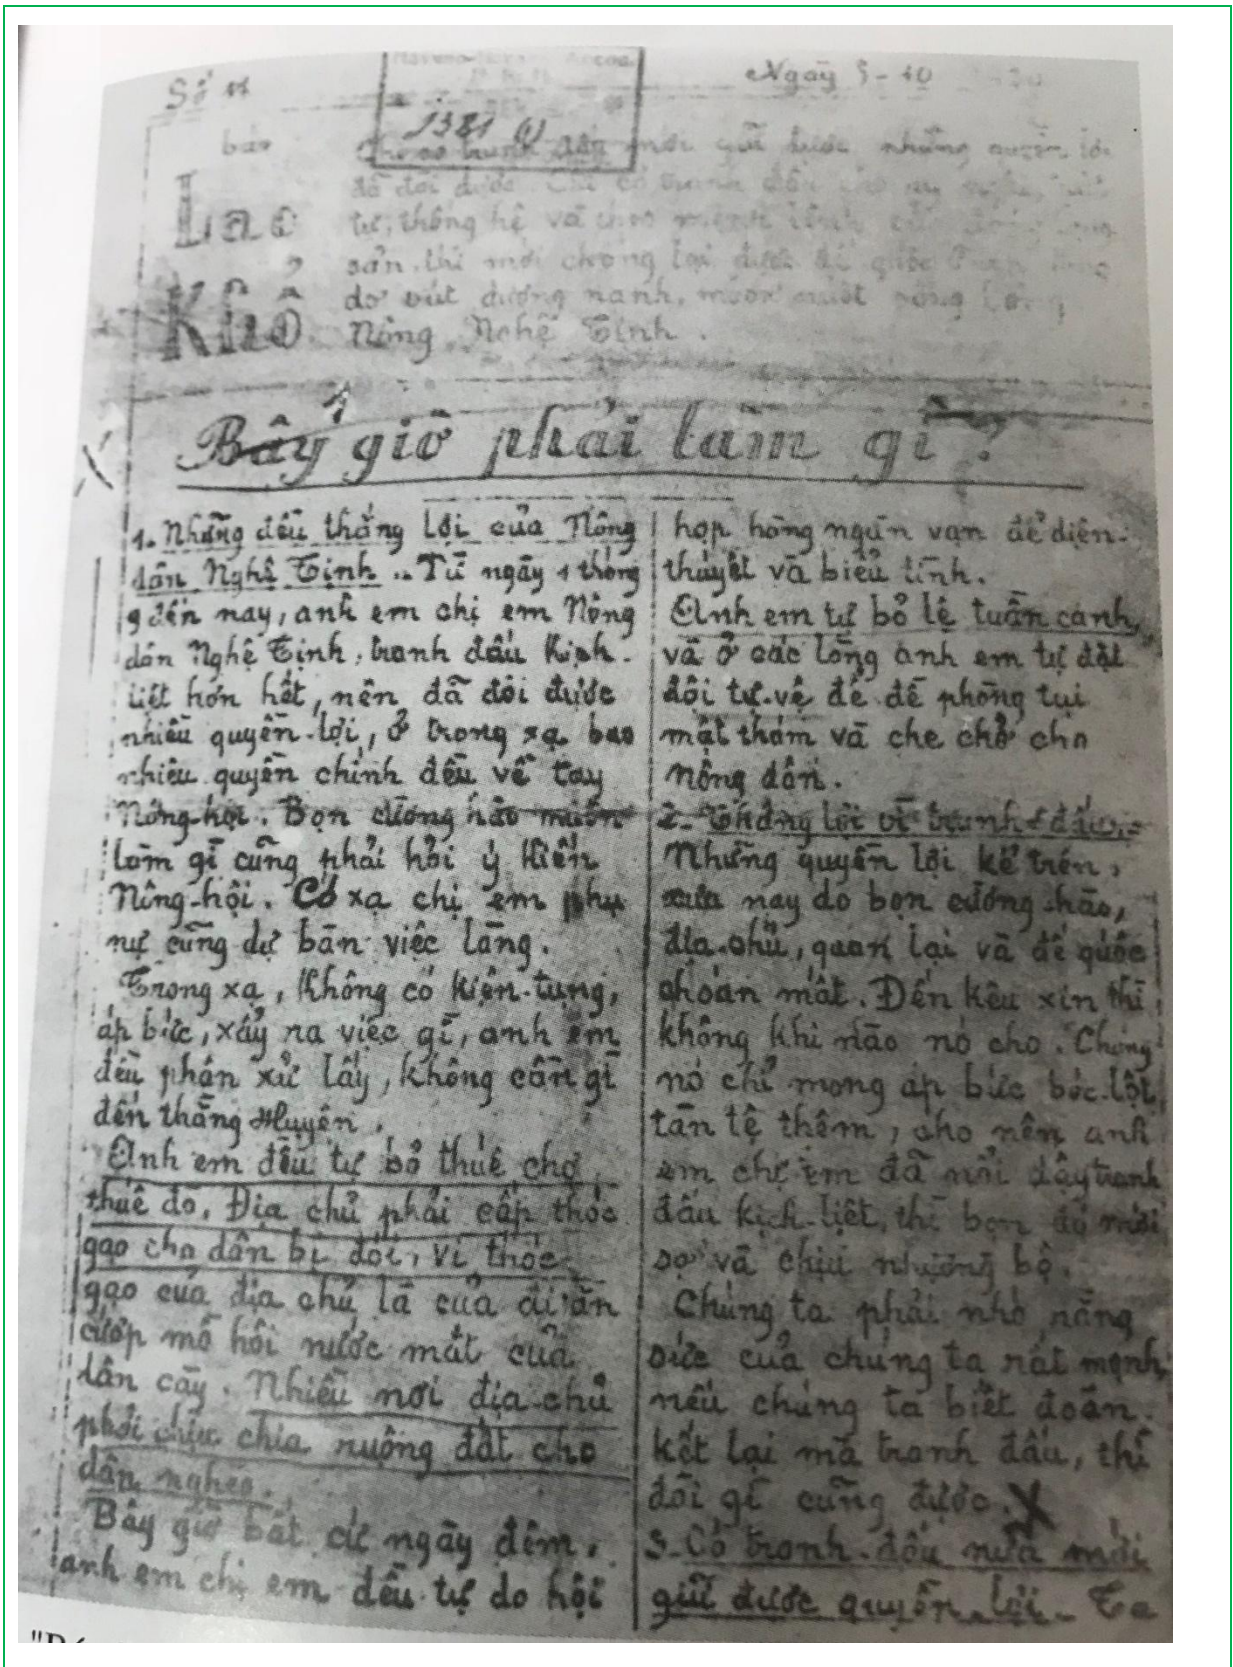 Số 11
Ngày 5-10
1381
báo
Lao
Khổ
Chỉ có tranh đấu mới giữ được những quyền lợi
đã đòi được. Chỉ có tranh đấu cho
tự, thống hệ và theo mệnh lệnh của Đảng Cộng
sản, thì mới chống lại được đế quốc Pháp đang
dơ vút dương nanh, muốn nuốt sống Công,
Nông Nghệ Tĩnh.
Bấy giờ phải làm gì?
1. Những đều thắng lợi của Nông
dân Nghệ Tịnh.. Từ ngày 1 tháng
9 đến nay, anh em chị em Nông
dân Nghệ Tịnh, tranh đấu kịch-
liệt hơn hết, nên đã đòi được
nhiều quyền-lợi, ở trong xạ bao
nhiêu quyền chính đều về tay
Nông-hội. Bọn cường hào muốn
làm gì cũng phải hỏi ý kiến
Nông-hội. Có xạ chị em phụ
nự cũng dự bàn việc làng.
Trong xạ, không có kiện-tụng,
áp bức, xẩy ra việc gì, anh em
đều phân xử lấy, không cần gì
đến thằng Huyện.
Anh em đều tự bỏ thuế chợ
thuế đò. Địa chủ phải cấp thóc
gạo cho dân bị đói, vì thóc
gạo của địa chủ là của đi ăn
cướp mồ hôi nước mắt của
dân cày. Nhiều nơi địa-chủ
phải chịu chia ruộng đất cho
dân nghèo.
Bây giờ bất cứ ngày đêm,
anh em chị em đều tự do hội
họp hàng ngàn vạn để diện-
thuyết và biểu tình.
Anh em tự bỏ lệ tuần canh,
và ở các làng anh em tự đặt
đội tự-vệ để đề phòng tụi
mật thám và che chở cho
nông dân.
2- Thắng lợi vì tranh-đấu.-
Những quyền lợi kể trên,
xưa nay do bọn cường-hào,
địa-chủ, quan lại và đế quốc
choán mất. Đến kêu xin thì
không khi nào nó cho. Chúng
nó chỉ mong áp bức bóc-lột
tàn tệ thêm, cho nên anh
em chị em đã nổi dậy tranh
đấu kịch-liệt, thì bọn đó mới
sợ và chịu nhượng bộ.
Chúng ta phải nhớ rằng
sức của chúng ta rất mạnh,
nếu chúng ta biết đoàn-
kết lại mà tranh đấu, thì
đòi gì cũng được.
3-Có tranh-đấu nữa mới
giữ được quyền lợi- Ta